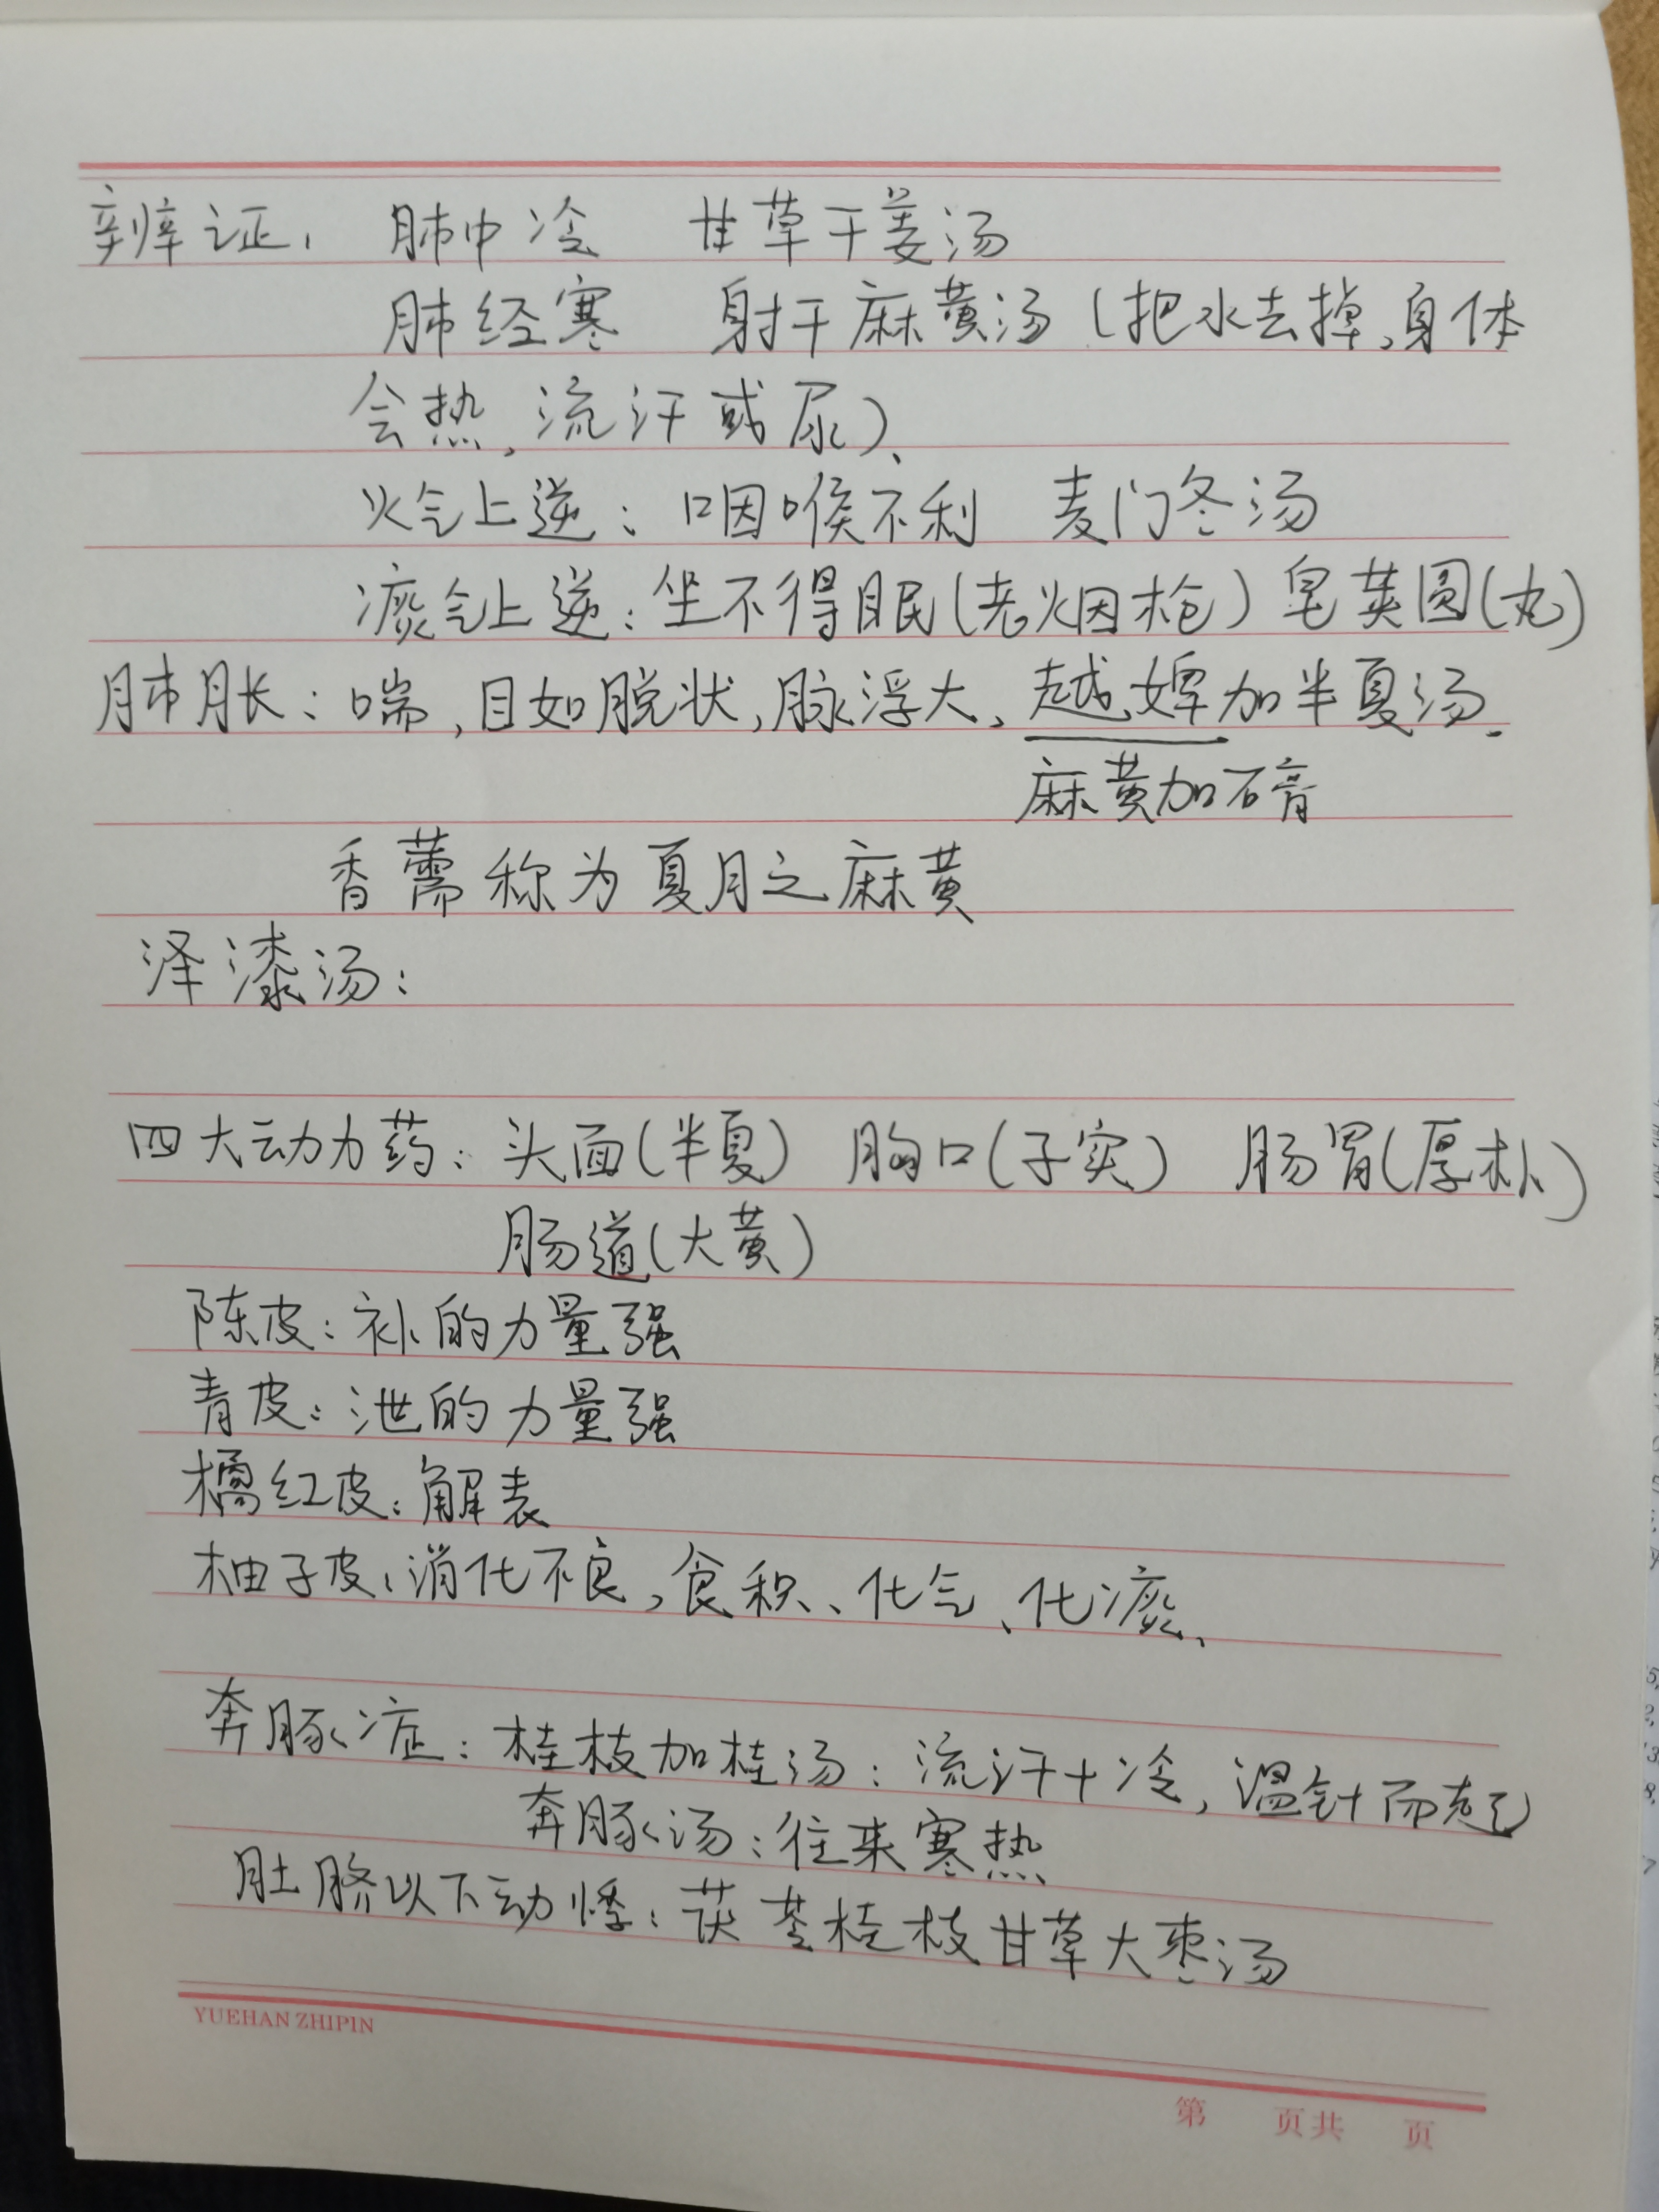 辨证、 肺中冷 甘草干姜汤
肺经寒 射干麻黄汤(把水去掉,身体
会热,流汗或尿)、
火气上逆:咽喉不利 麦门冬汤
痰气上逆:坐不得眠(老烟枪)皂荚圆(丸)
肺胀:喘,目如脱状,脉浮大,越婢加半夏汤.
麻黄加石膏
香薷称为夏月之麻黄
泽漆汤:
四大动力药:头面(半夏) 胸口(子实) 肠胃(厚朴)
肠道(大黄)
陈皮:补的力量强
青皮:泄的力量强
橘红皮:解表
柚子皮:消化不良,食积、化气、化痰、
奔豚症:桂枝加桂汤:流汗+冷,温针而起
奔豚汤:往来寒热
肚脐以下动悸:茯苓桂枝甘草大枣汤
YUEHAN ZHIPIN
第 页共 页